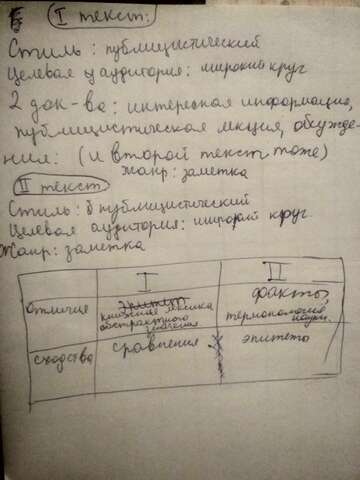 I текст:
Стиль: публицистический
Целевая аудитория: широкий круг
2 док-ва: интересная информация,
публицистическая лекция, обужде-
ния: (и второй текст тоже)
жанр: заметка
II текст
Стиль: публицистический
Целевая аудитория: широкий круг
Жанр: заметка
I II
Отличия Эпитет факты,
книжная лексика терминология,
абстрактного науки.
значения
сходства сравнения эпитеты